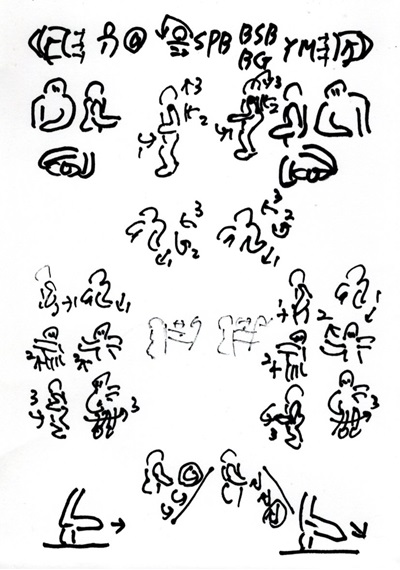 SPB BSB YM
BG
3 3
2 2
1 1
3 3
2 2
1 1
1 1 1 1
2 2 2 2
3 3 3 3